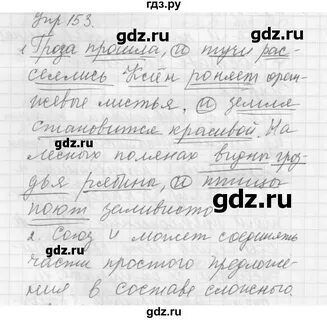 Упр 153.
1. Гроза прошла, и тучи рас-
селись Клён роняет оран-
жевые листья, и земля
становится красивой. На
лесных полянах видны гро-
здья рябины, и птицы
поют заливисто
2. Союз и может соединять
части простого предложе-
ния в составе сложного
gdz.ru